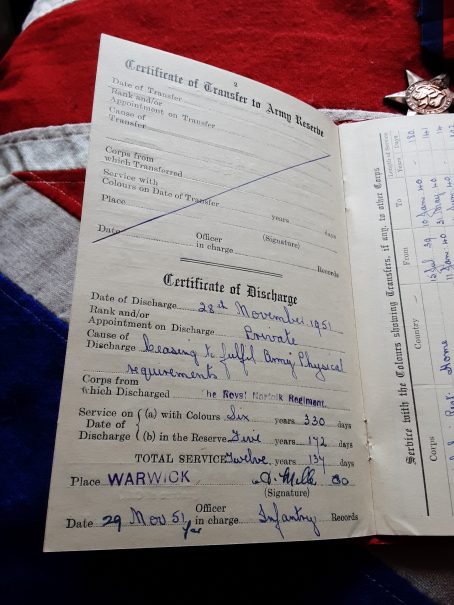 2
Certificate of Transfer to Army Reserve
Date of Transfer
Rank and/or
Appointment on Transfer
Cause of
Transfer
Corps from
which Transferred
Service with
Colours on Date of Transfer
years days
Place
(Signature)
Date Officer
in charge Records
Certificate of Discharge
Date of Discharge 28th November 1951
Rank and/or
Appointment on Discharge Private
Cause of
Discharge Ceasing to fulfil Army Physical
requirements
Corps from
which Discharged The Royal Norfolk Regiment.
Service on (a) with Colours Six years 330 days
Date of
Discharge (b) in the Reserve Five years 172 days
TOTAL SERVICE Twelve years 137 days
Place WARWICK
(Signature)
Date 29 Nov 51 Officer
in charge Infantry Records
Service with the Colours showing Transfers, if any, to other Corps
Corps
Country
From
To
Length of Service
Years Days
Home
180